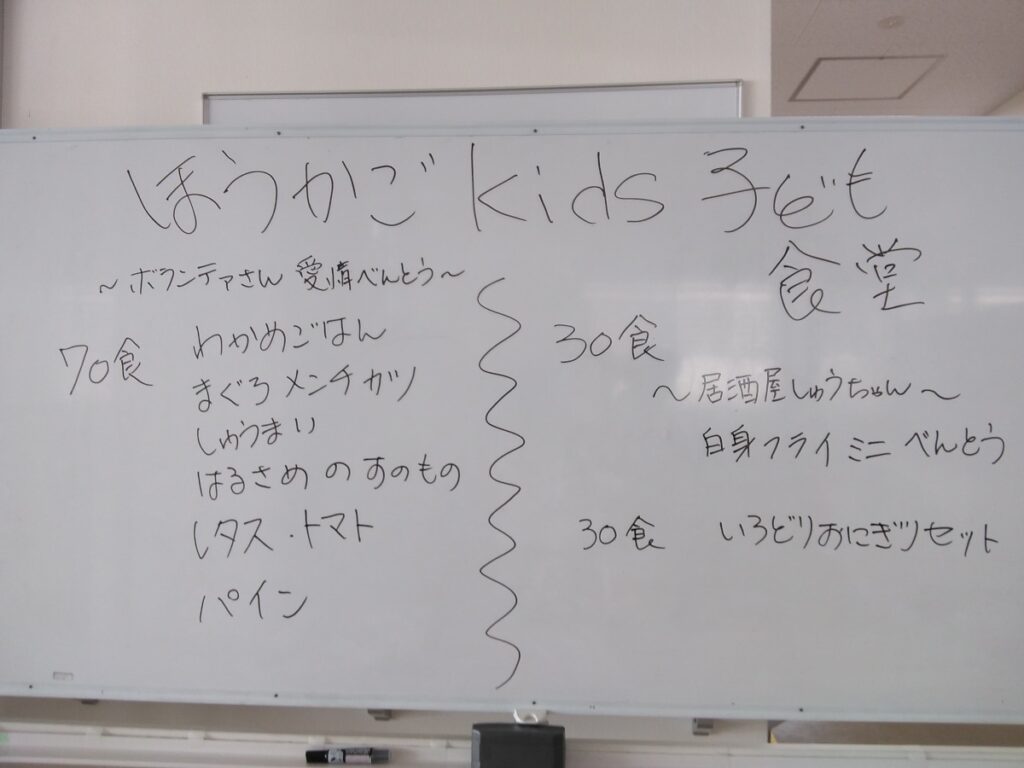 ほうかご kids 子ども
食堂
～ボランテァさん 愛情べんとう～
70食
わかめごはん
まぐろメンチカツ
しゅうまい
はるさめのすのもの
レタス・トマト
パイン
30食
～居酒屋しゅうちゃん～
白身フライミニべんとう
30食 いろどりおにぎりセット